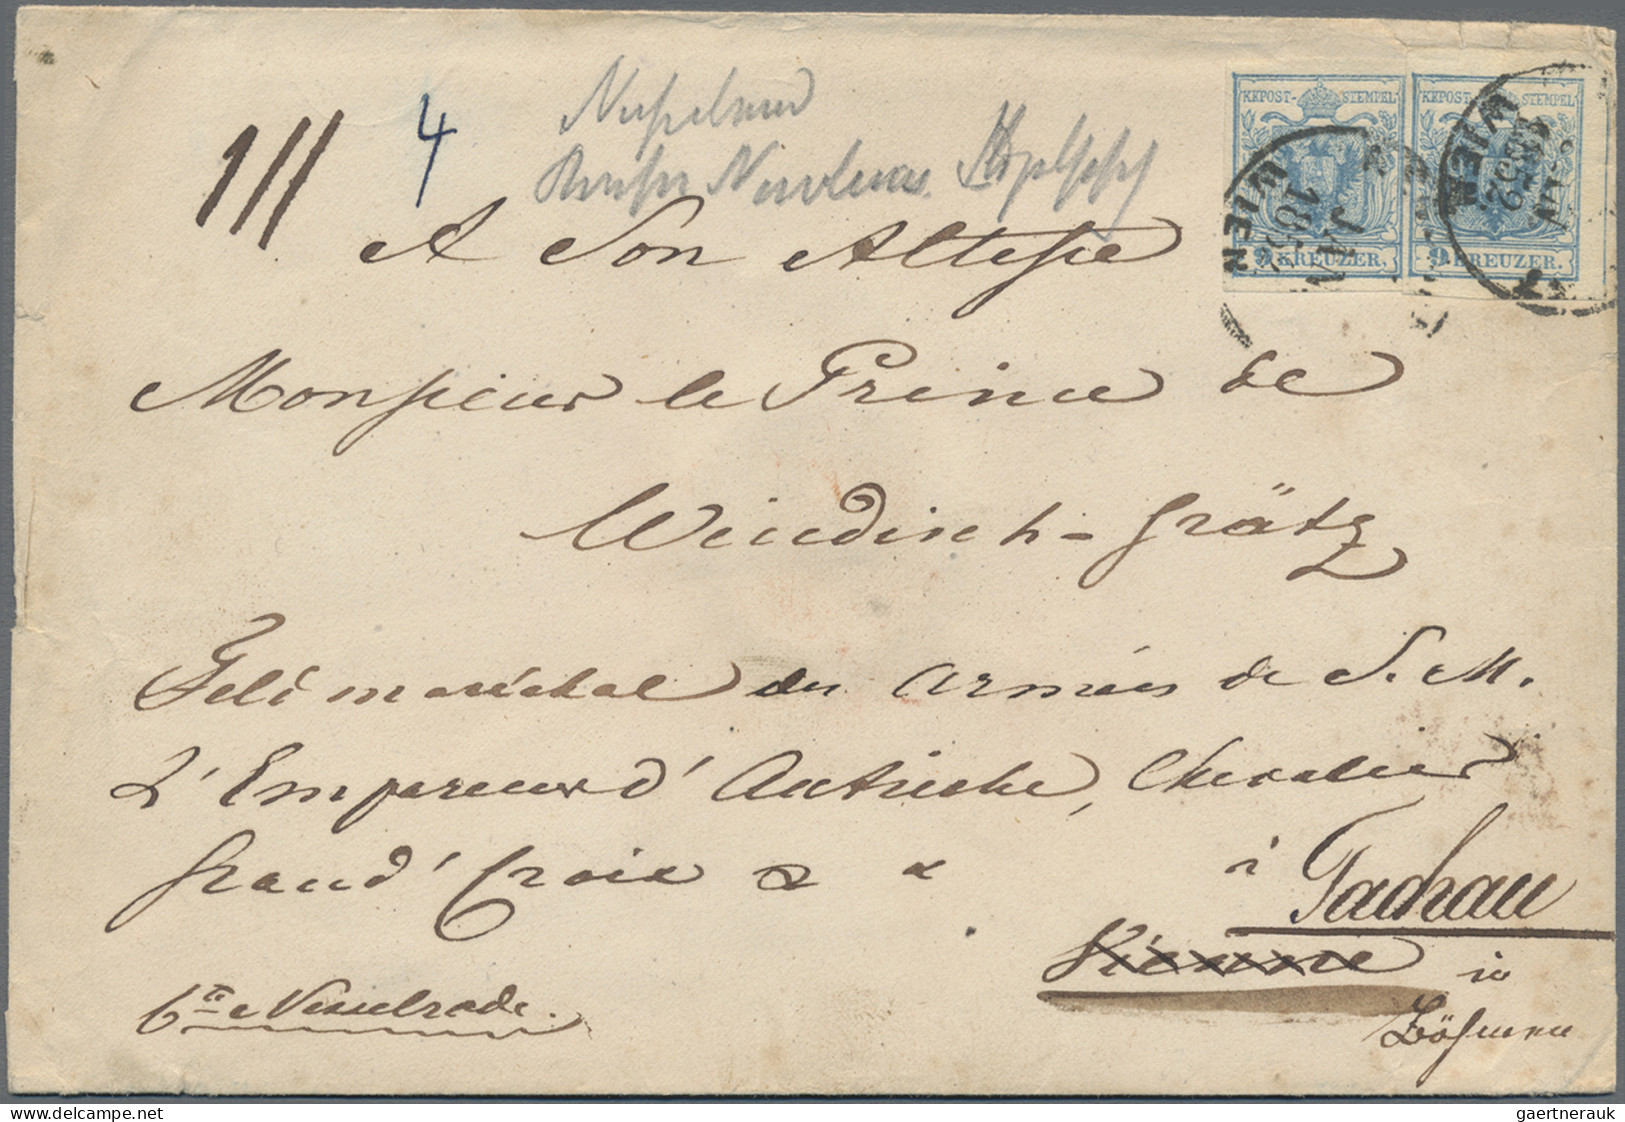 4
A Son Altesse
Monsieur le Prince de
Windisch-Grätz
Feld maréchal des Armées de S. M.
L'Empereur d'Autriche, Chevalier
Grand' Croix & &
à Tachau
Vienne
in
Böhmen
Cte Nesselrode.
KKPOST-STEMPEL
9 KREUZER.
KKPOST-STEMPEL
9 KREUZER.
WIEN
WIEN
1852
gaertnerauk